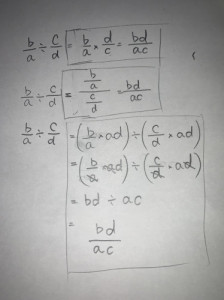 b/a ÷ c/d = b/a × d/c = bd/ac
b/a ÷ c/d = (b/a)/(c/d) = bd/ac
b/a ÷ c/d = (b/a × ad) ÷ (c/d × ad)
= (b/a × ad) ÷ (c/d × ad)
= bd ÷ ac
= bd/ac